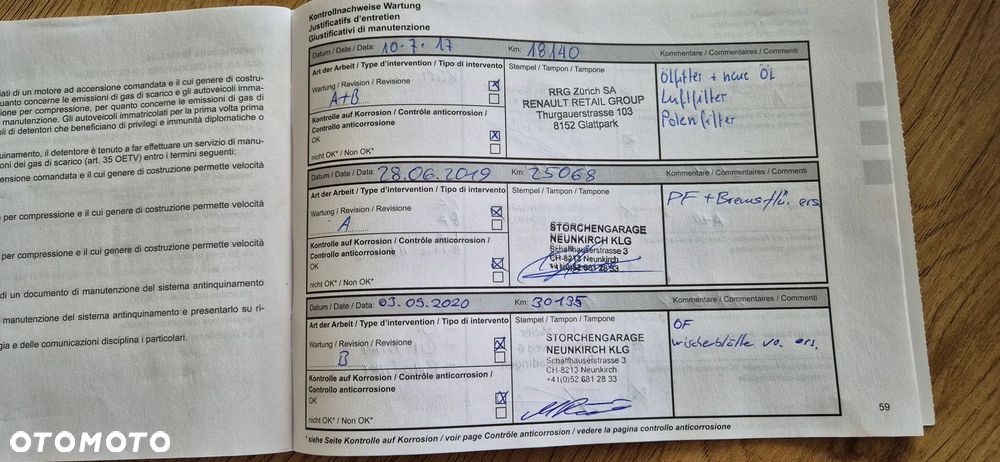 ati di un motore ad accensione comandata e il cui genere di costru-
uanto concerne le emissioni di gas di scarico e gli autoveicoli imma-
ione per compressione, per quanto concerne le emissioni di gas di
manutenzione. Gli autoveicoli immatricolati per la prima volta prima
oli di detentori che beneficiano di privilegi e immunità diplomatiche o
uinamento, il detentore è tenuto a far effettuare un servizio di manu-
oni dei gas di scarico (art. 35 OETV) entro i termini seguenti:
ensione comandata e il cui genere di costruzione permette velocità
per compressione e il cui genere di costruzione permette velocità
per compressione e il cui genere di costruzione permette velocità
di un documento di manutenzione del sistema antinquinamento
manutenzione del sistema antinquinamento e presentarlo su ri-
gia e delle comunicazioni disciplina i particolari.
Kontrollnachweise Wartung
Justificatifs d'entretien
Giustificativi di manutenzione
Datum / Date / Data: 10.7.17 Km: 18140 Kommentare / Commentaires / Commenti
Art der Arbeit / Type d'intervention / Tipo di intervento
Wartung / Revision / Revisione
A+B
Kontrolle auf Korrosion / Contrôle anticorrosion /
Controllo anticorrosione
OK
nicht OK* / Non OK*
Stempel / Tampon / Tampone
RRG Zürich SA
RENAULT RETAIL GROUP
Thurgauerstrasse 103
8152 Glattpark
Ölfilter + neue Öl
Luftfilter
Polenfilter
Datum / Date / Data: 28.06.2019 Km: 25068 Kommentare / Commentaires / Commenti
Art der Arbeit / Type d'intervention / Tipo di intervento
Wartung / Revision / Revisione
A
Kontrolle auf Korrosion / Contrôle anticorrosion /
Controllo anticorrosione
OK
nicht OK* / Non OK*
Stempel / Tampon / Tampone
STORCHENGARAGE
NEUNKIRCH KLG
Schaffhauserstrasse 3
CH-8213 Neunkirch
+41(0)52 681 28 33
PF + Bremsflü. ers.
Datum / Date / Data: 03.09.2020 Km: 30135 Kommentare / Commentaires / Commenti
Art der Arbeit / Type d'intervention / Tipo di intervento
Wartung / Revision / Revisione
B
Kontrolle auf Korrosion / Contrôle anticorrosion /
Controllo anticorrosione
OK
nicht OK* / Non OK*
Stempel / Tampon / Tampone
STORCHENGARAGE
NEUNKIRCH KLG
Schaffhauserstrasse 3
CH-8213 Neunkirch
+41(0)52 681 28 33
OF
wischerblätte vo. ers.
59
* siehe Seite Kontrolle auf Korrosion / voir page Contrôle anticorrosion / vedere la pagina controllo anticorrosione
OTOMOTO